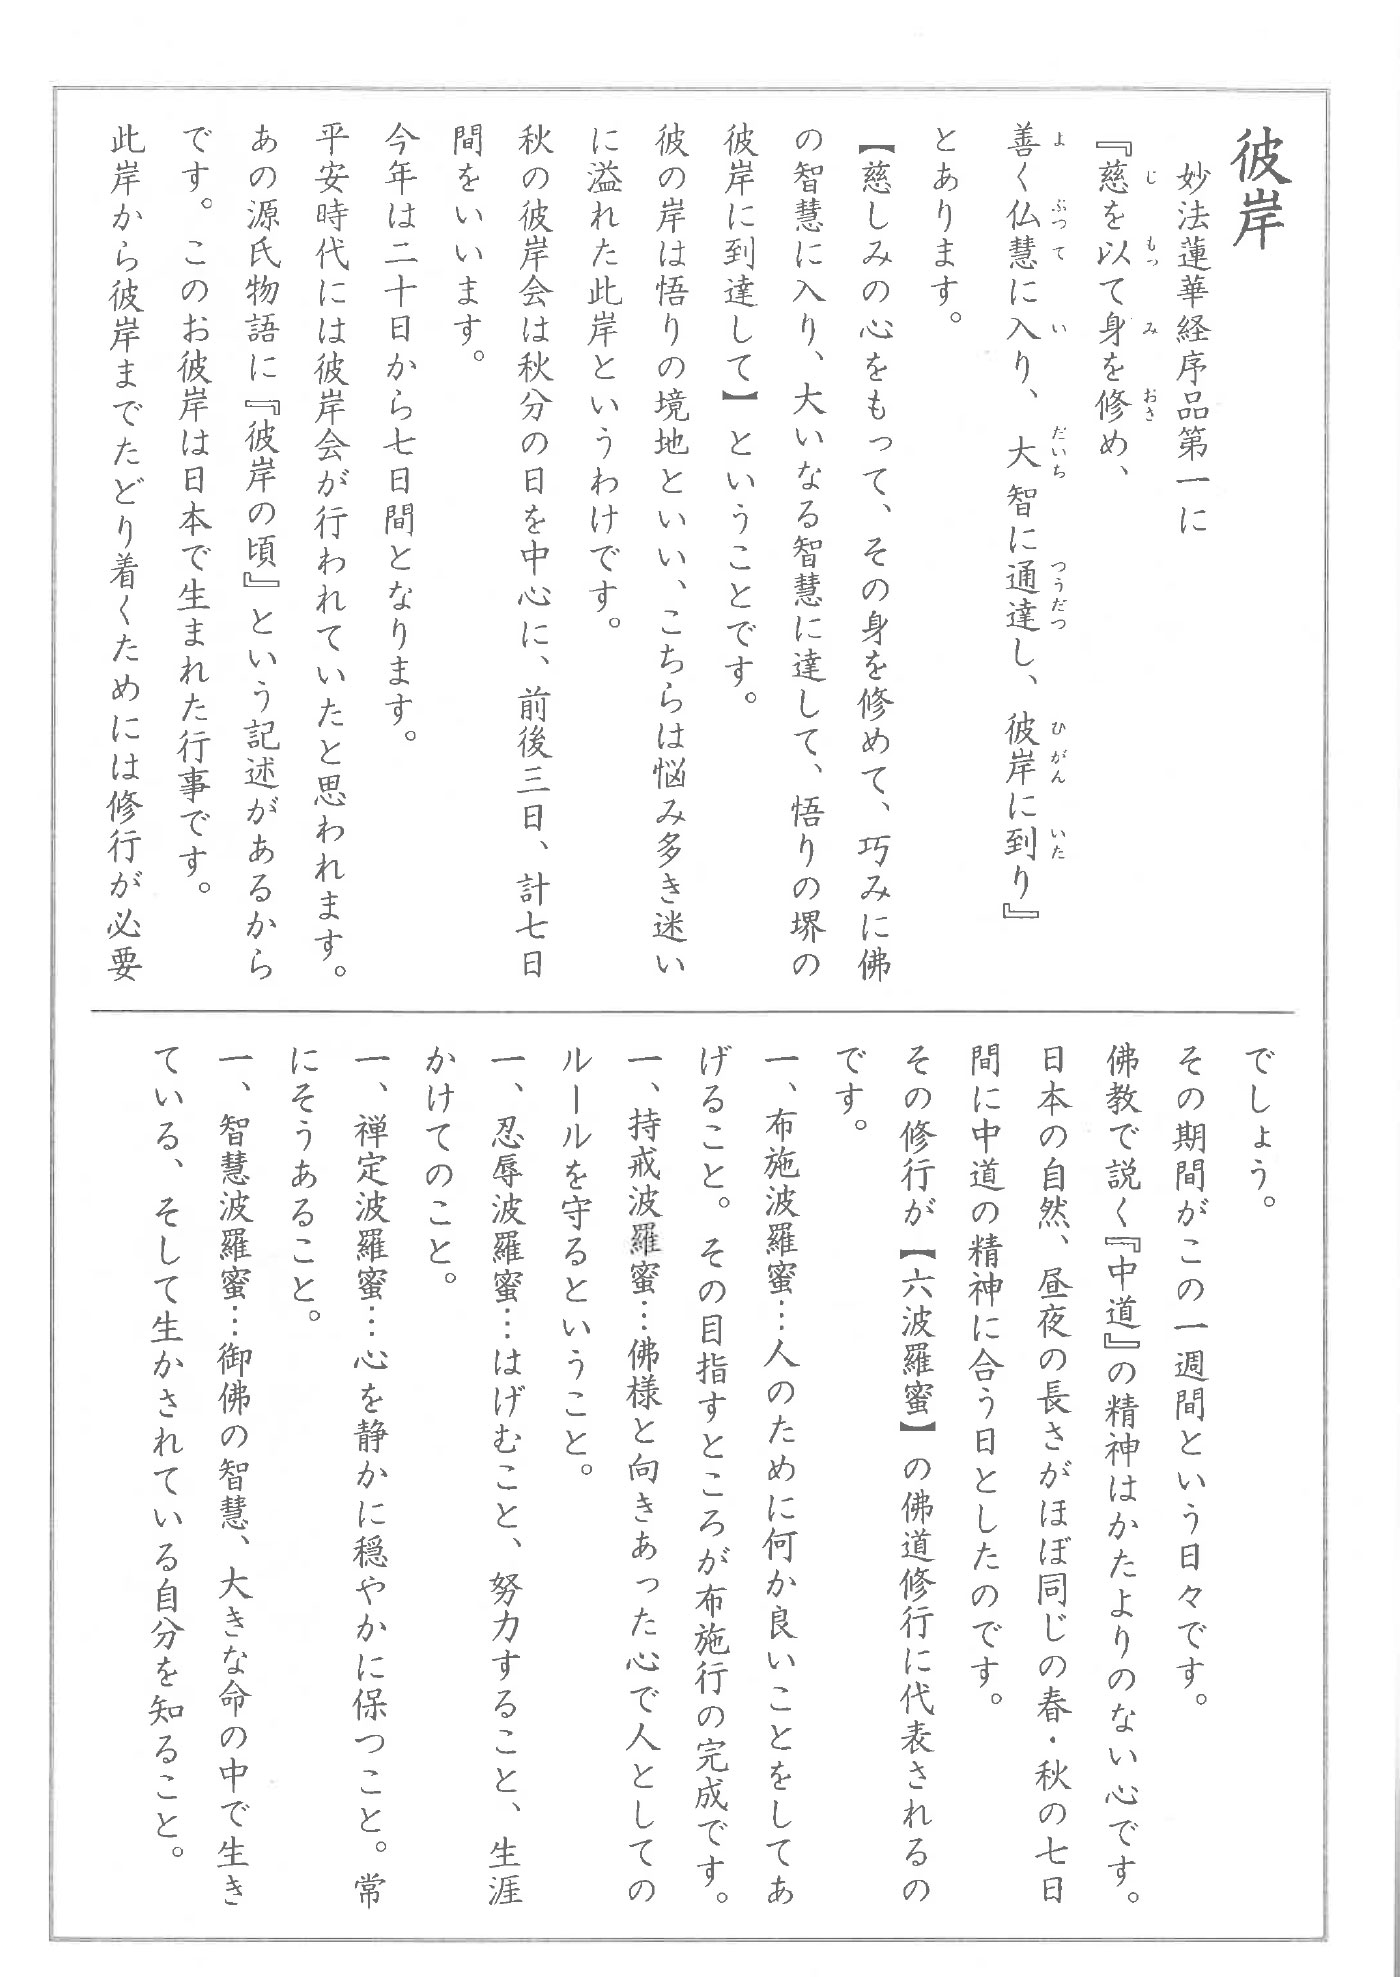 彼岸
妙法蓮華経序品第一に
『慈を以て身を修め、
じ もっ み おさ
善く仏慧に入り、大智に通達し、彼岸に到り』
よ ぶつて い だいち つうだつ ひがん いた
とあります。
【慈しみの心をもって、その身を修めて、巧みに佛
の智慧に入り、大いなる智慧に達して、悟りの堺の
彼岸に到達して】ということです。
彼の岸は悟りの境地といい、こちらは悩み多き迷い
に溢れた此岸というわけです。
秋の彼岸会は秋分の日を中心に、前後三日、計七日
間をいいます。
今年は二十日から七日間となります。
平安時代には彼岸会が行われていたと思われます。
あの源氏物語に『彼岸の頃』という記述があるから
です。このお彼岸は日本で生まれた行事です。
此岸から彼岸までたどり着くためには修行が必要
でしょう。
その期間がこの一週間という日々です。
佛教で説く『中道』の精神はかたよりのない心です。
日本の自然、昼夜の長さがほぼ同じの春・秋の七日
間に中道の精神に合う日としたのです。
その修行が【六波羅蜜】の佛道修行に代表されるの
です。
一、布施波羅蜜…人のために何か良いことをしてあ
げること。その目指すところが布施行の完成です。
一、持戒波羅蜜…佛様と向きあった心で人としての
ルールを守るということ。
一、忍辱波羅蜜…はげむこと、努力すること、生涯
かけてのこと。
一、禅定波羅蜜…心を静かに穏やかに保つこと。常
にそうあること。
一、智慧波羅蜜…御佛の智慧、大きな命の中で生き
ている、そして生かされている自分を知ること。